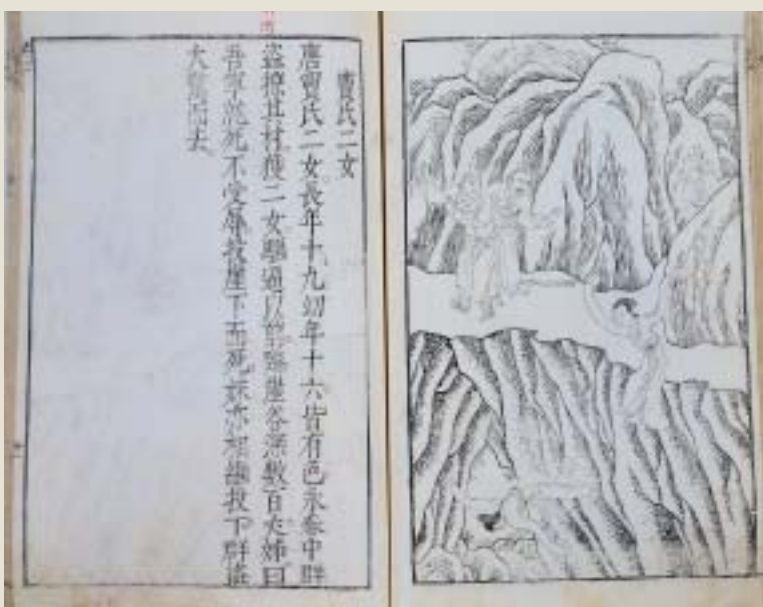 竇氏二女
唐竇氏二女長年十九幼年十六皆有色永泰中群
盜掠其村獲二女驅迫以前臨壑谷深數百丈姊曰
吾寧就死不受辱投崖下而死妹亦相繼投下群盜
大驚而去